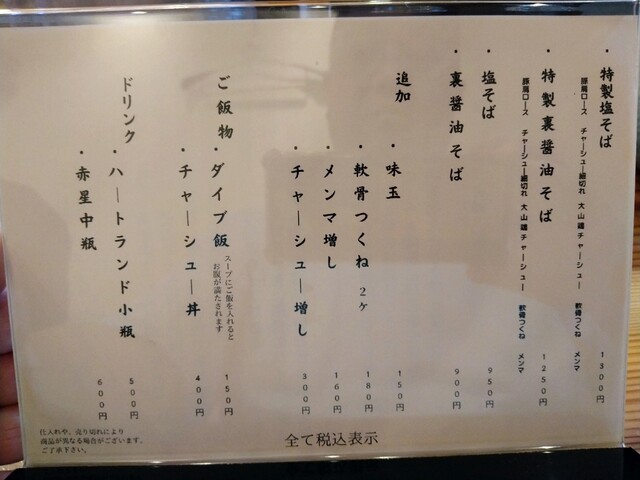 ・特製塩そば 1300円
豚肩ロース チャーシュー細切れ 大山鶏チャーシュー 軟骨つくね メンマ
・特製裏醤油そば 1250円
豚肩ロース チャーシュー細切れ 大山鶏チャーシュー 軟骨つくね メンマ
・塩そば 950円
・裏醤油そば 900円
追加
・味玉 150円
・軟骨つくね 2ヶ 180円
・メンマ増し 160円
・チャーシュー増し 300円
ご飯物
・ダイブ飯 150円
スープにご飯を入れると
お腹が満たされます
・チャーシュー丼 400円
ドリンク
・ハートランド小瓶 500円
・赤星中瓶 600円
仕入れや、売り切れにより
商品が異なる場合がございます。
ご了承下さい。
全て税込表示